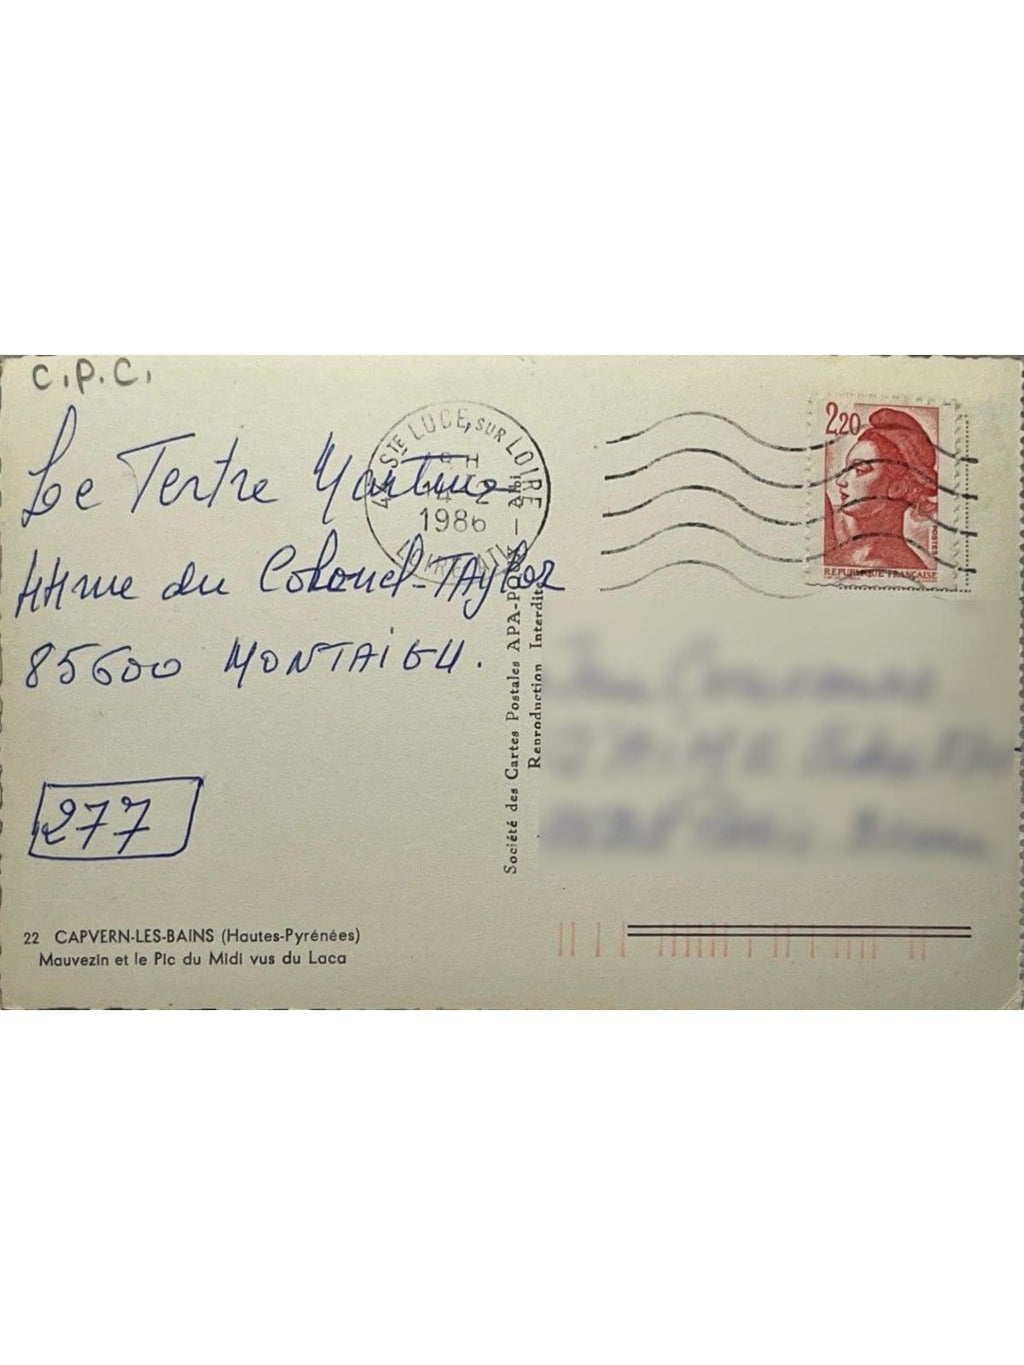 C.P.C.
Le Tertre Martine
44 rue du Colonel-TAylor
85600 MONTAIGU.
277
22 CAPVERN-LES-BAINS (Hautes-Pyrénées)
Mauvezin et le Pic du Midi vus du Laca
44 STE LUCE SUR LOIRE
18 H
14 - 2
1986
LOIRE ATL
Société des Cartes Postales APA-POUX — Albi
Reproduction Interdite
2,20
POSTES
REPUBLIQUE FRANÇAISE